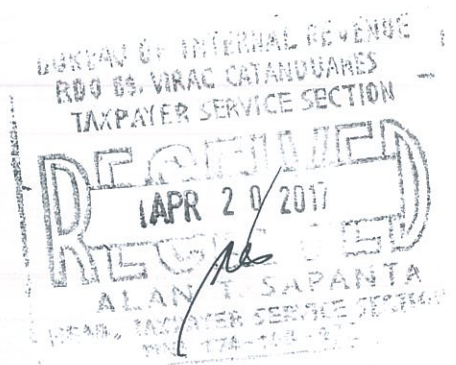 BUREAU OF INTERNAL REVENUE
RDO 69, VIRAC CATANDUANES
TAXPAYER SERVICE SECTION
RECEIVED
APR 20 2017
ALAN T. SAPANTA
HEAD, TAXPAYER SERVICE SECTION